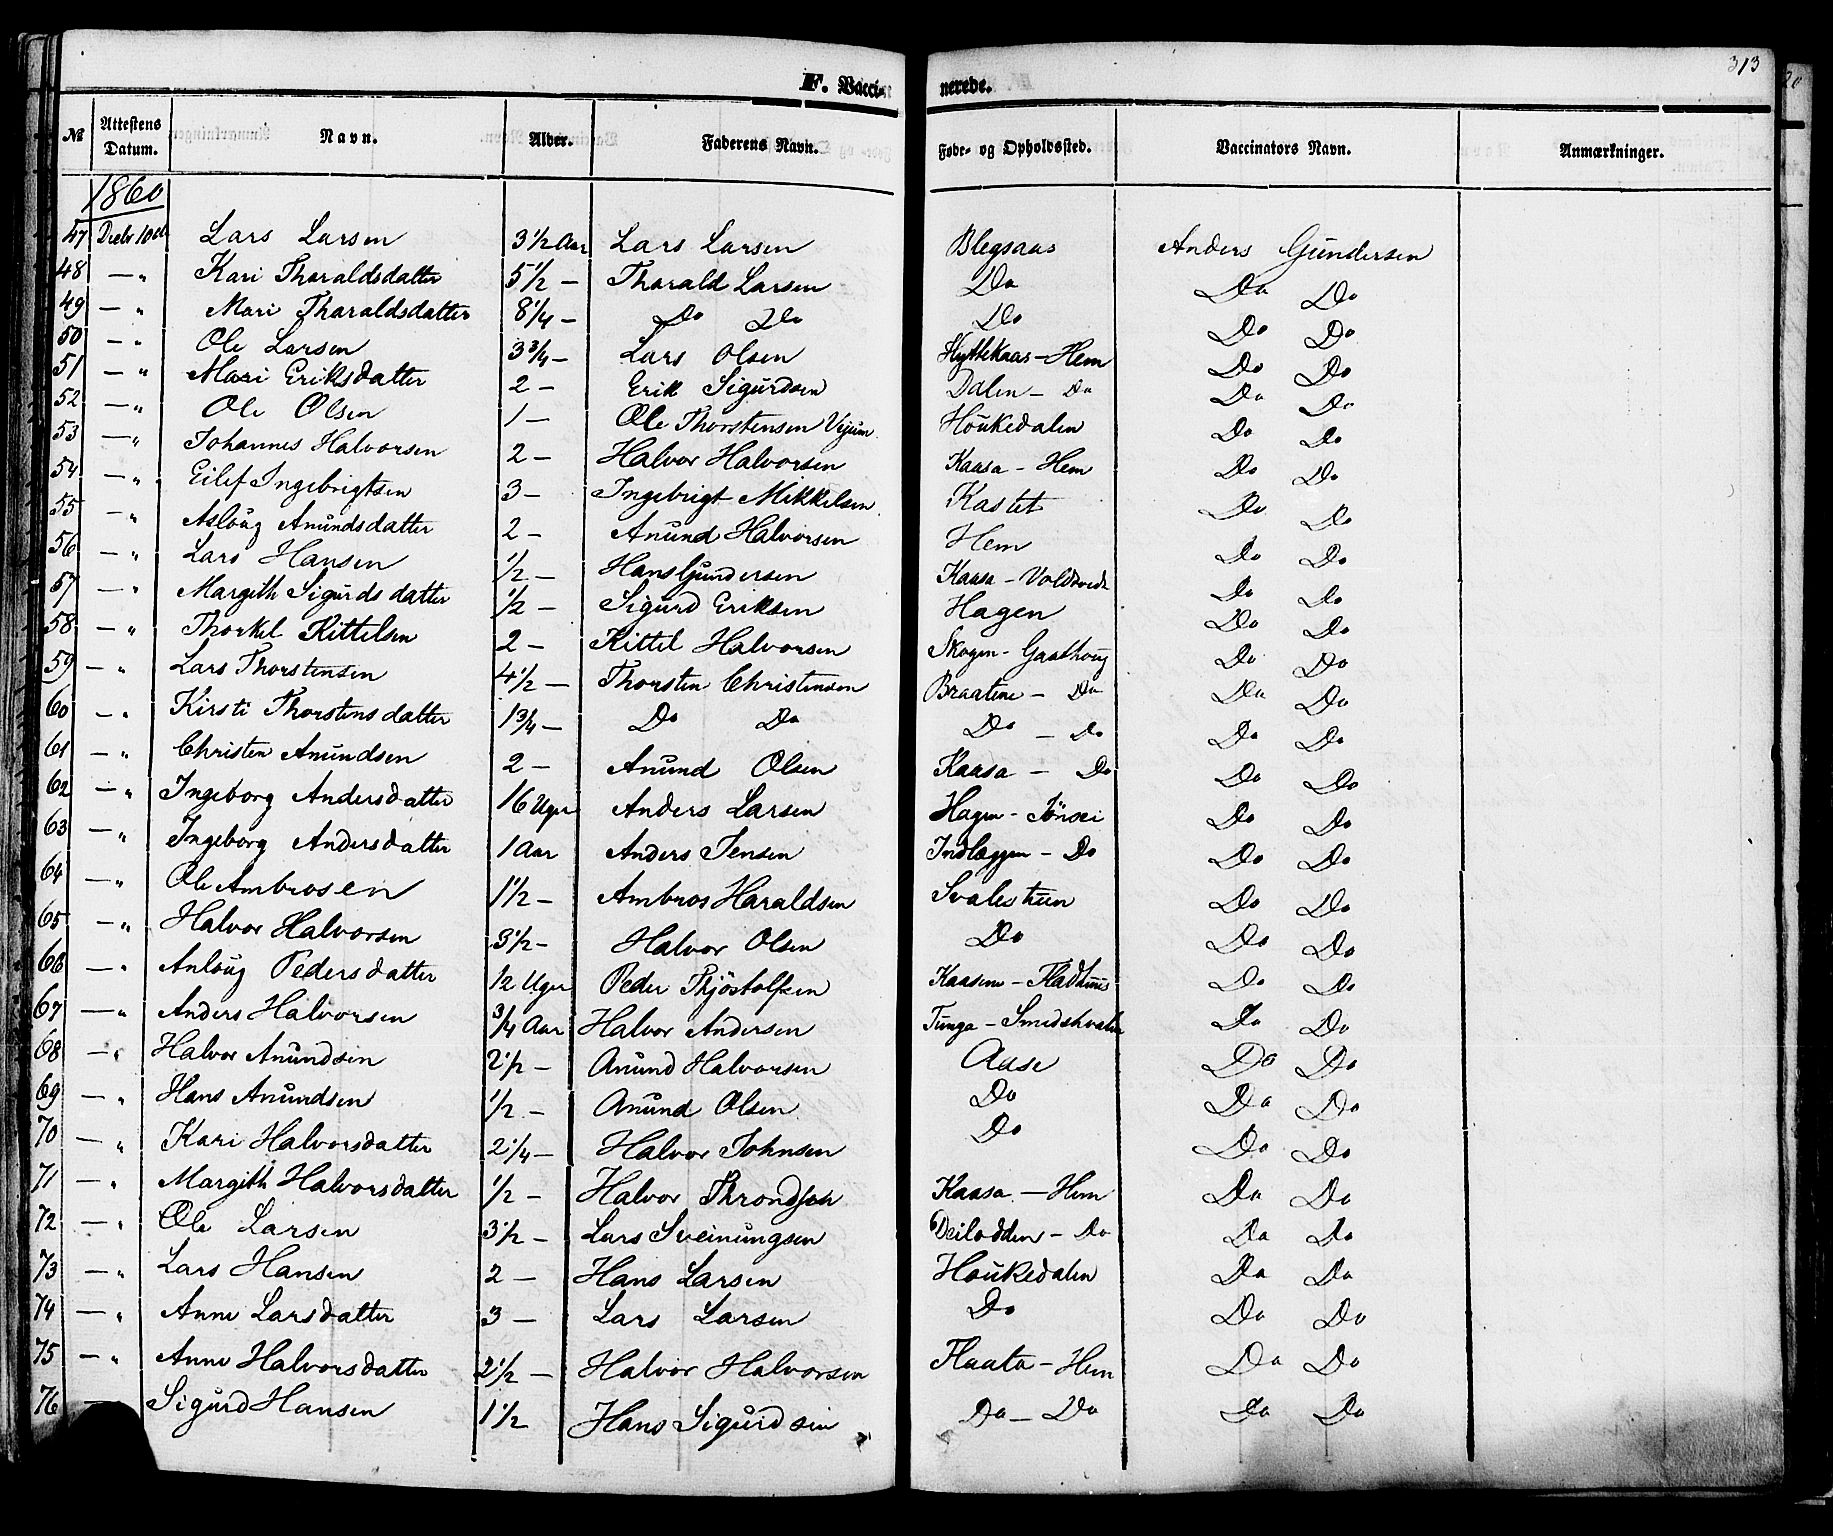 313
F. Vacci- nerede.
№ Attestens Datum. Navn. Alder. Faderens Navn. Føde- og Opholdssted. Vaccinators Navn. Anmærkninger.
1860
47 Decbr 10de Lars Larsen 3 1/2 Aar Lars Larsen Blegsaas Anders Gundersen
48 — " Kari Tharaldsdatter 5 1/2 — Tharald Larsen Do Do Do
49 — " Mari Tharaldsdatter 8 1/4 — Do Do Do Do Do
50 — " Ole Larsen 3 3/4 — Lars Olsen Hyttekaas — Hem Do Do
51 — " Mari Eriksdatter 2 — Erik Sigurdsen Dalen — Do Do Do
52 — " Ole Olsen 1 — Ole Thorstensen Vejum Houkedalen Do Do
53 — " Johannes Halvorsen 2 — Halvor Halvorsen Kaasa — Hem Do Do
54 — " Eilef Ingebrigtsen 3 — Ingebrigt Mikkelsen Kastet Do Do
55 — " Asloug Anundsdatter 2 — Anund Halvorsen Hem Do Do
56 — " Lars Hansen 1/2 — Hans Gundersen Kaasa — Do Do
57 — " Margith Sigurdsdatter 1/2 — Sigurd Eriksen Hagen Do Do
58 — " Thorkel Kittelsen 2 — Kittel Halvorsen Skogen — Gaathoug Do Do
59 — " Lars Thorstensen 4 1/2 — Thorsten Christensen Braatene — Do Do Do
60 — " Kirsti Thorstensdatter 1 3/4 — Do Do Do — Do Do Do
61 — " Christen Anundsen 2 — Anund Olsen Kaasa — Do Do Do
62 — " Ingeborg Andersdatter 16 Uger Anders Larsen Hagen — Jönsei Do Do
63 — " Ingeborg Andersdatter 1 Aar Anders Jensen Indlæggen — Do Do Do
64 — " Ole Ambrosen 1 1/2 — Ambros Haraldsen Svalestuen Do Do
65 — " Halvor Halvorsen 3 1/2 — Halvor Olsen Do Do Do
66 — " Anloug Pedersdatter 12 Uger Peder Thjöstolfsen Kaasene — Fladhuus Do Do
67 — " Anders Halvorsen 3/4 Aar Halvor Andersen Tunga — Do Do
68 — " Halvor Anundsen 2 1/2 — Anund Halvorsen Aase Do Do
69 — " Hans Anundsen 1/2 — Anund Olsen Do Do Do
70 — " Kari Halvorsdatter 2 1/4 — Halvor Johnsen Do Do Do
71 — " Margith Halvorsdatter 1/2 — Halvor Throndsen Kaasa — Hem Do Do
72 — " Ole Larsen 3 1/2 — Lars Sveinungsen — Do Do Do
73 — " Lars Hansen 2 — Hans Larsen Houkedalen Do Do
74 — " Anne Larsdatter 3 — Lars Larsen Do Do Do
75 — " Anne Halvorsdatter 2 1/2 — Halvor Halvorsen Flaata — Hem Do Do
76 — Sigurd Hansen 1 1/2 Hans Sigurdsen Do — Do Do Do